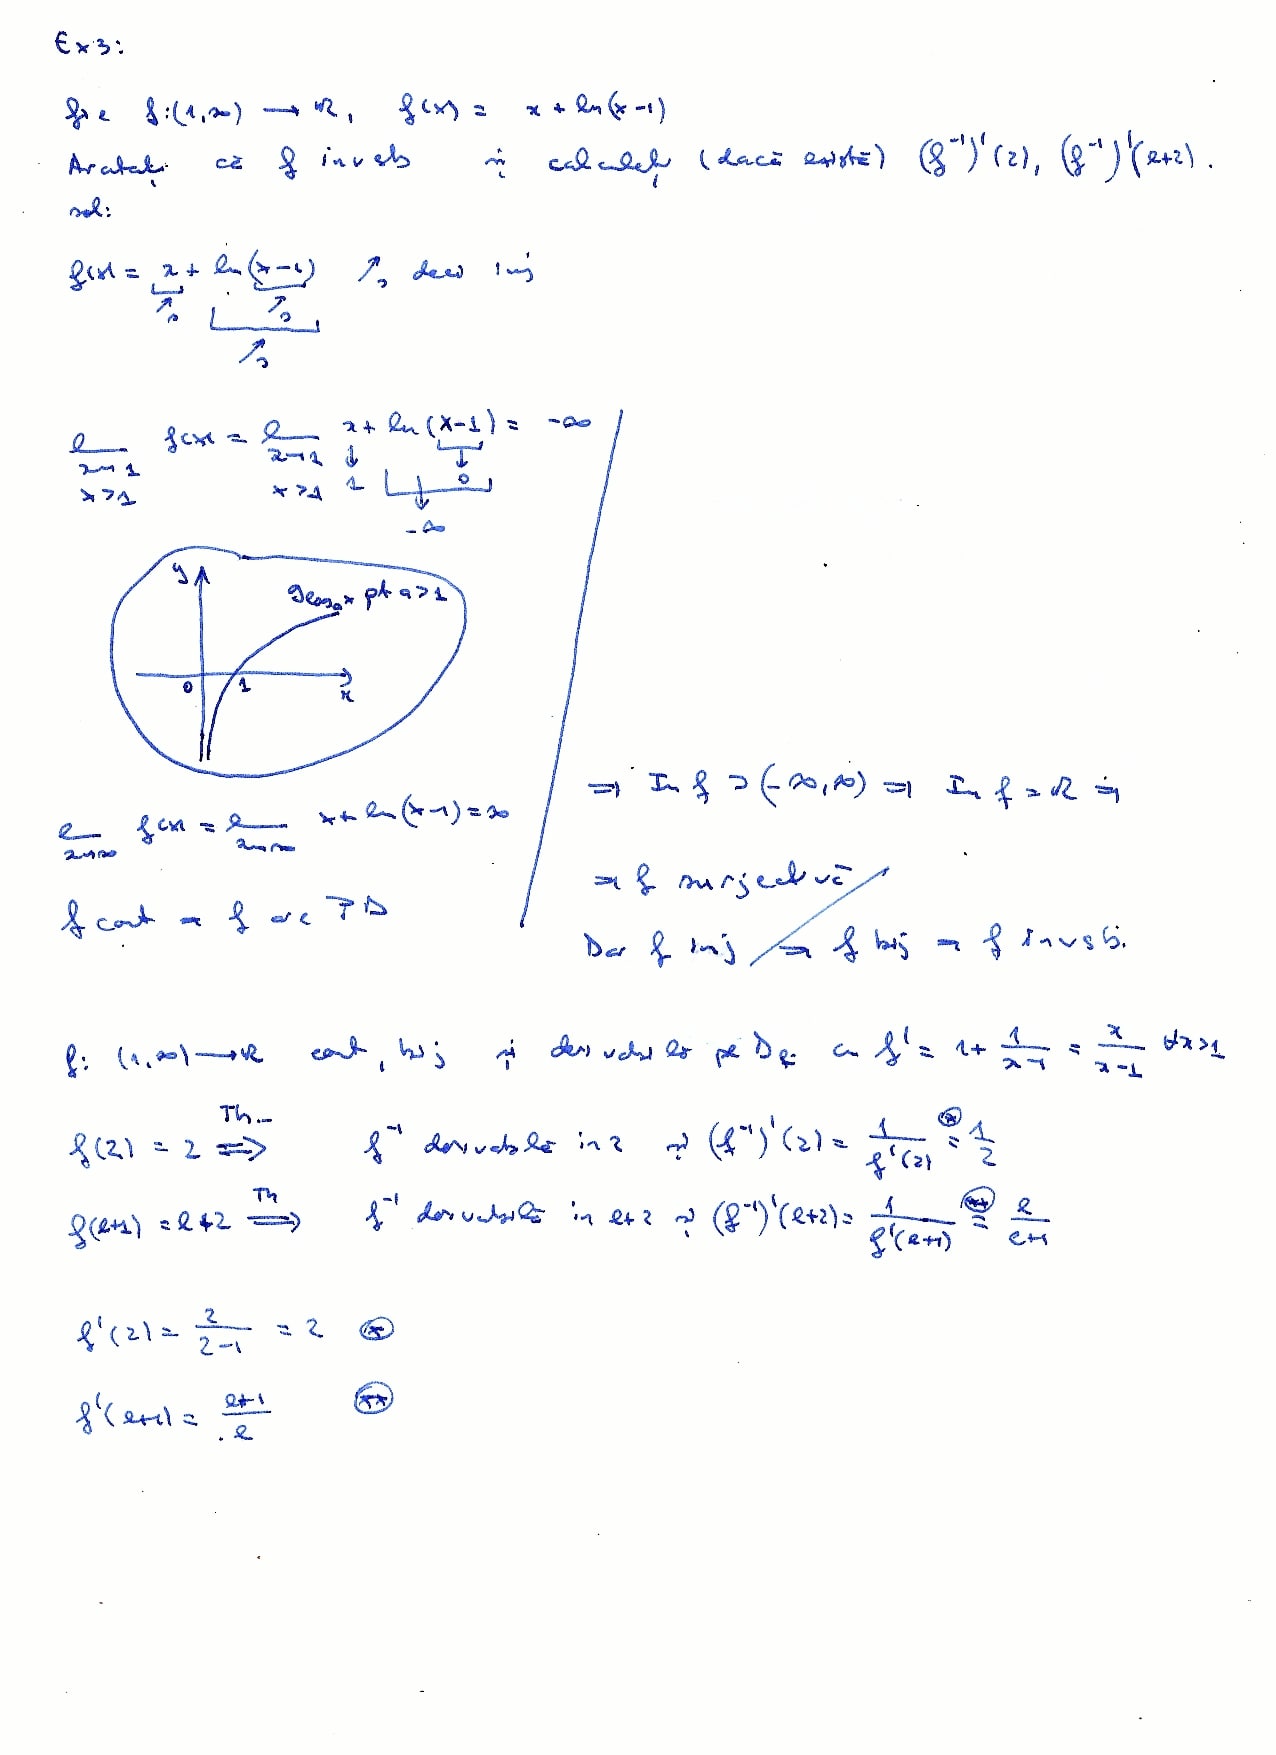 Ex3:
fie f:(1,∞) → ℝ, f(x) = x + ln(x-1)
Arătați că f inversb și calculați (dacă există) (f⁻¹)'(2), (f⁻¹)'(e+2).
sol:
f(x) = x + ln(x-1) ↗ₛ deci inj
↗ₛ ↗ₛ
↗ₛ
l f(x) = l x + ln(x-1) = -∞
x→1 x→1 ↓ ↓
x>1 x>1 1 0
-∞
y
G log_a x pt a>1
0 1 x
l f(x) = l x + ln(x-1) = ∞
x→∞ x→∞
f cont ⇒ f are PD
⇒ Im f ⊃ (-∞,∞) ⇒ Im f = ℝ ⇒
⇒ f surjectivă
Dar f inj ⇒ f bij ⇒ f inversb.
f: (1,∞) → ℝ cont, bij și derivabilă pe D_f cu f' = 1 + 1/(x-1) = x/(x-1) ∀x>1
f(2) = 2 ⟹ (Th) f⁻¹ derivabilă în 2 și (f⁻¹)'(2) = 1/f'(2) =(*) 1/2
f(e+1) = e+2 ⟹ (Th) f⁻¹ derivabilă în e+2 și (f⁻¹)'(e+2) = 1/f'(e+1) =(**) e/(e+1)
f'(2) = 2/(2-1) = 2 (*)
f'(e+1) = (e+1)/e (**)